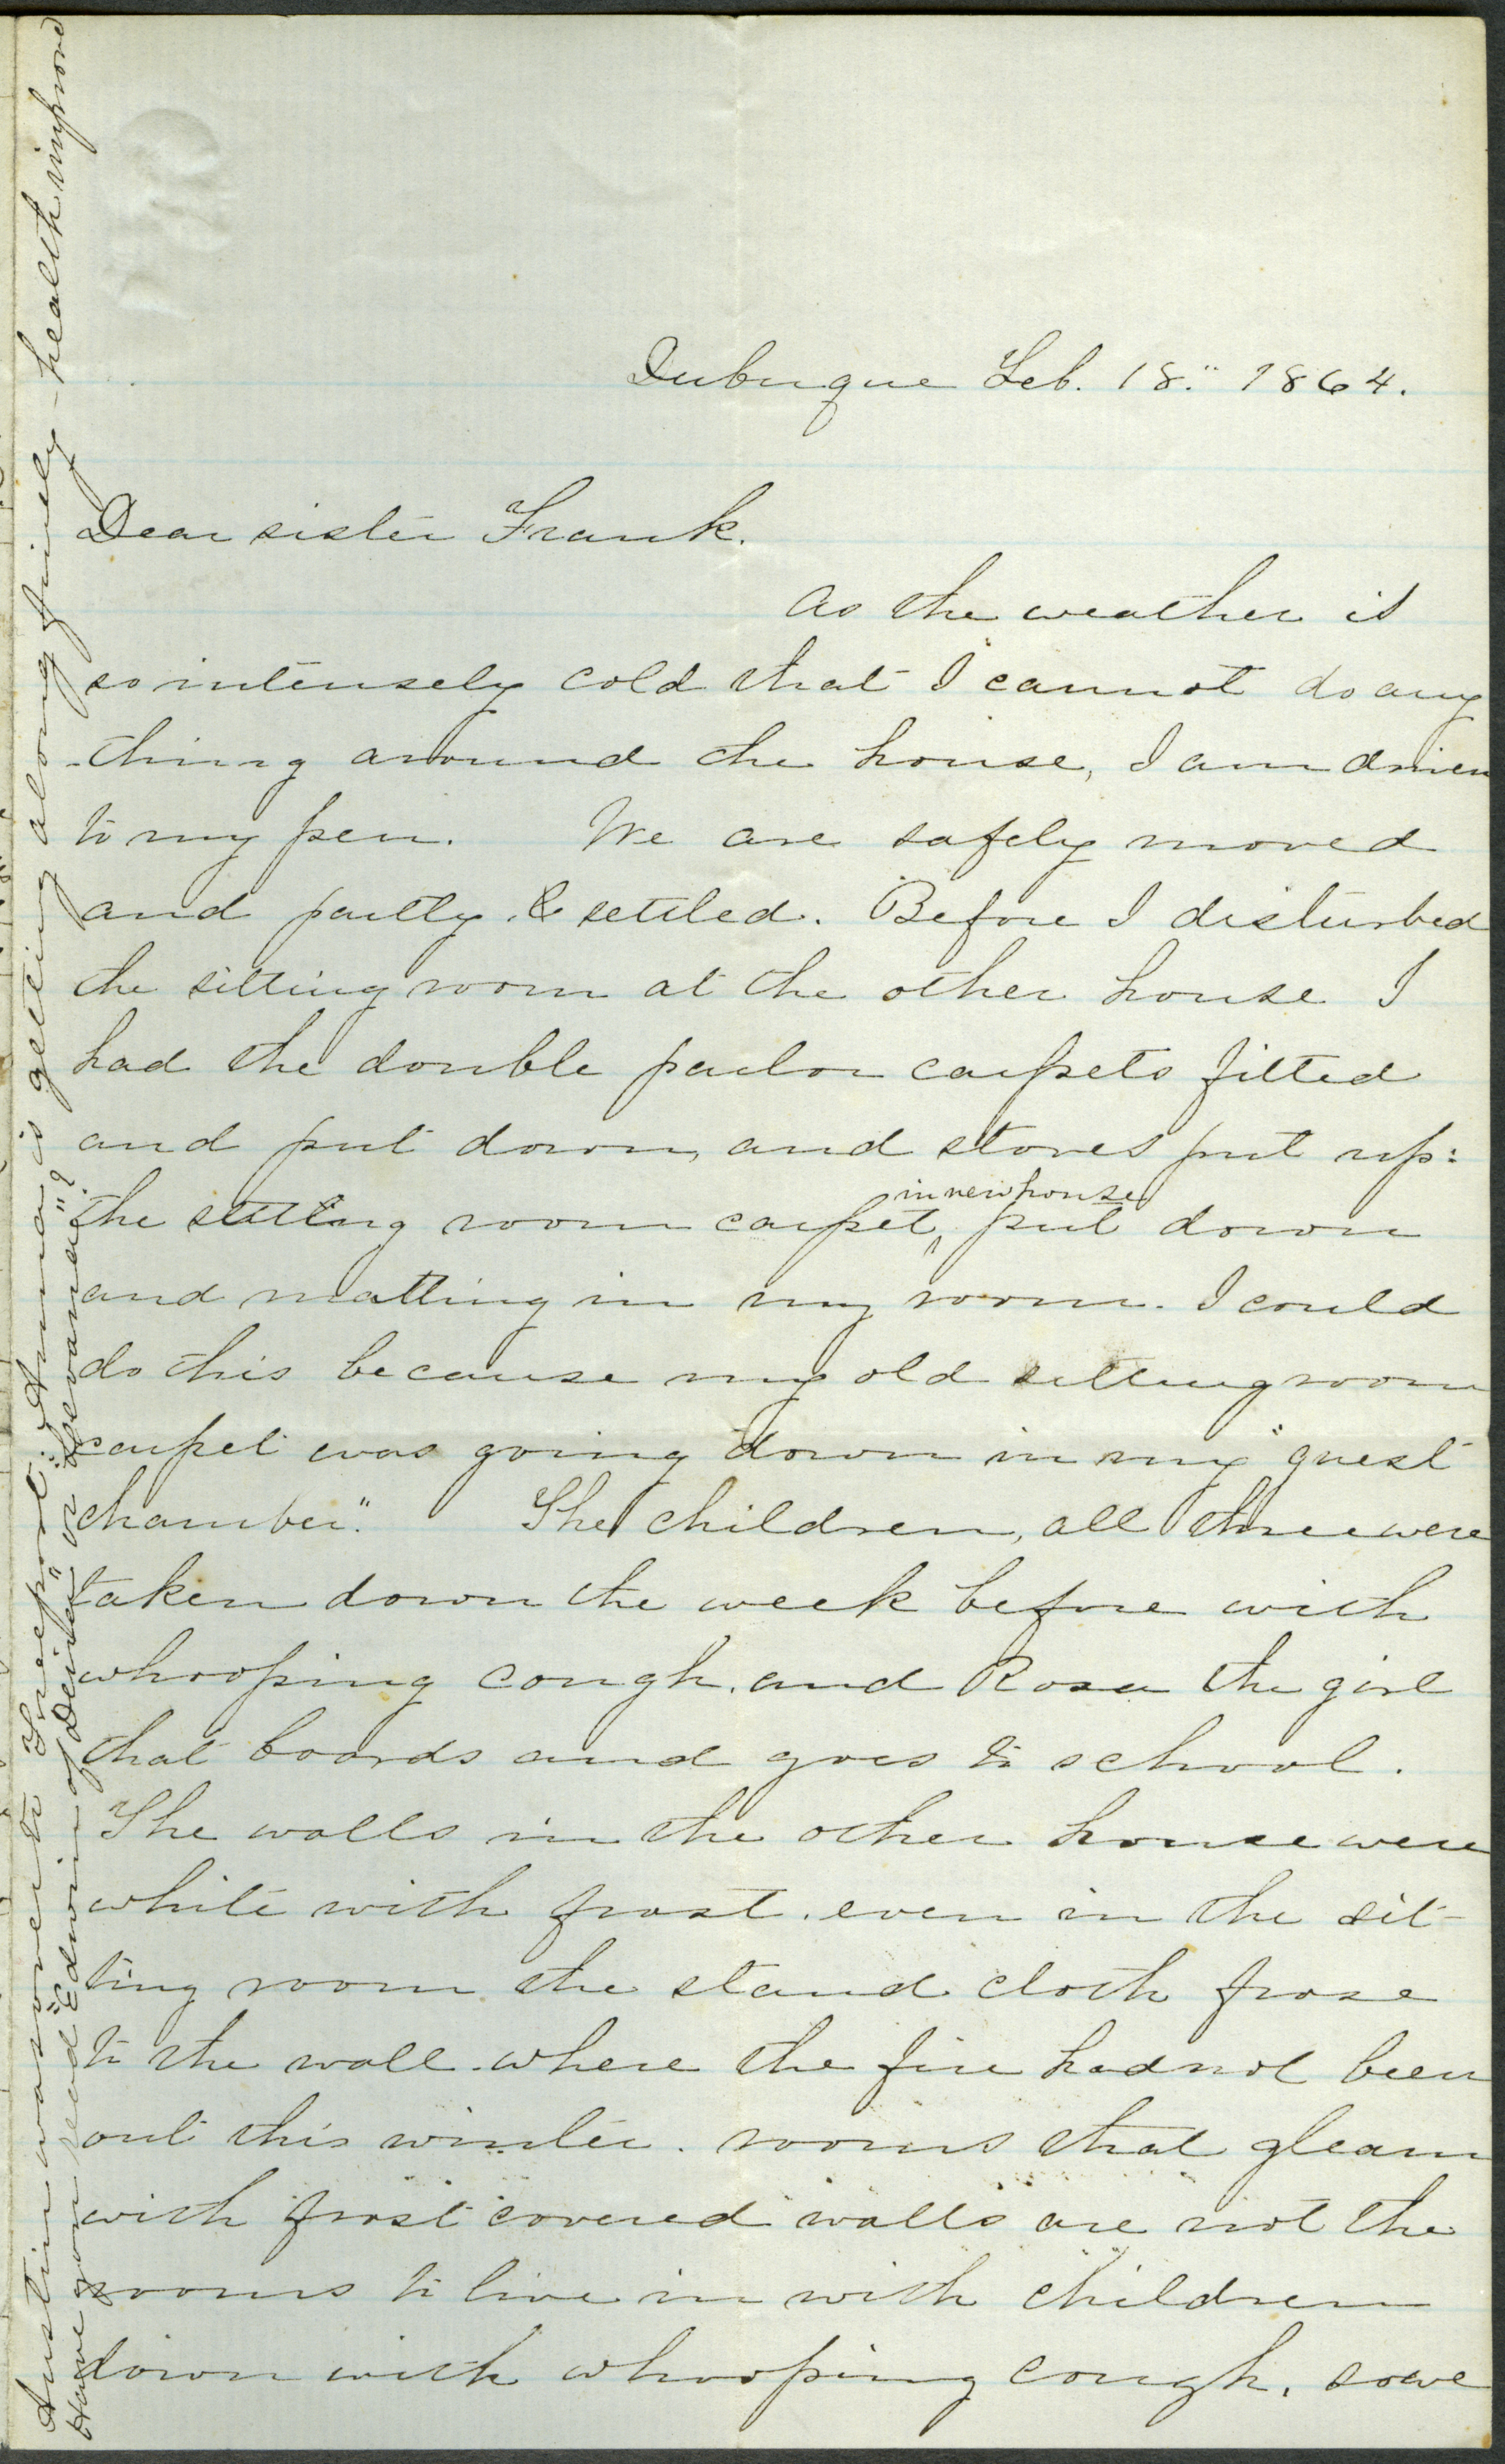 Dubuque Feb. 18." 1864.
Dear sister Frank.
As the weather is
so intensely cold that I cannot do any
-thing around the house, I am driven
to my pen. We are safely moved
and partly & settled. Before I disturbed
the sitting room at the other house I
had the double parlor carpets fitted
and put down, and stoves put up:
in new house
the sitting room carpet, put down
and matting in my room. I could
do this because my old sitting room
carpet was going down in my "guest
chamber." The children, all three were
taken down the week before with
whooping cough, and Rosa the girl
that boards and goes to school.
The walls in the other house were
white with frost. even in the sit-
ting room the stand cloth froze
to the wall where the fire had not been
out this winter. rooms that gleam
with frost covered walls are not the
rooms to live in with children
down with whooping cough. so we
Austin has gone to Freeport. Anna is getting along finely - health improved
Have you read "Edwin of Deira" or "Devanai"?